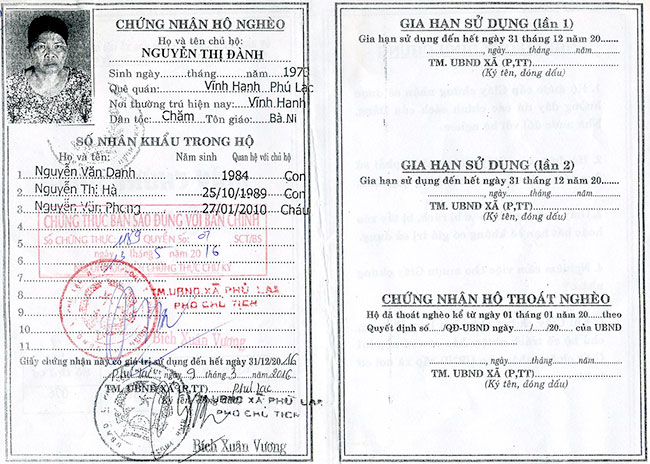 CHỨNG NHẬN HỘ NGHÈO
Họ và tên chủ hộ:
NGUYỄN THỊ ĐÀNH
Sinh ngày......tháng......năm 1970
Quê quán: Vĩnh Hanh Phú Lạc
Nơi thường trú hiện nay: Vĩnh Hanh
Dân tộc: Chăm Tôn giáo: Bà Ni
SỐ NHÂN KHẨU TRONG HỘ
Họ và tên: Năm sinh Quan hệ với chủ hộ
1. Nguyễn Văn Danh 1984 Con
2. Nguyễn Thị Hà 25/10/1989 Con
3. Nguyễn Văn Phong 27/01/2010 Cháu
CHỨNG THỰC BẢN SAO ĐÚNG VỚI BẢN CHÍNH
4
SỐ CHỨNG THỰC 1189 QUYỂN SỐ: 01 SCT/BS
5
Ngày 13 tháng 5 năm 2016
6
CHỨNG THỰC CHỮ KÝ
7
8
TM.UBND XÃ PHÚ LẠC
PHÓ CHỦ TỊCH
9
10
11
Bích Xuân Vương
Giấy chứng nhận này có giá trị sử dụng đến hết ngày 31/12/2016
Phú Lạc, ngày 9 tháng 3 năm 2016
TM. UBND XÃ (P,TT) Phú Lạc
(Ký tên, đóng dấu)
TM.UBND XÃ PHÚ LẠC
PHÓ CHỦ TỊCH
Bích Xuân Vương
GIA HẠN SỬ DỤNG (lần 1)
Gia hạn sử dụng đến hết ngày 31 tháng 12 năm 20......
...................., ngày......tháng......năm.........
TM. UBND XÃ (P,TT)....................
(Ký tên, đóng dấu)
GIA HẠN SỬ DỤNG (lần 2)
Gia hạn sử dụng đến hết ngày 31 tháng 12 năm 20......
...................., ngày......tháng......năm.........
TM. UBND XÃ (P,TT)....................
(Ký tên, đóng dấu)
CHỨNG NHẬN HỘ THOÁT NGHÈO
Hộ đã thoát nghèo kể từ ngày 01 tháng 01 năm 20......theo
Quyết định số...../QĐ-UBND ngày...../...../20..... của UBND
........................................
...................., ngày......tháng......năm.........
TM. UBND XÃ (P,TT)....................
(Ký tên, đóng dấu)